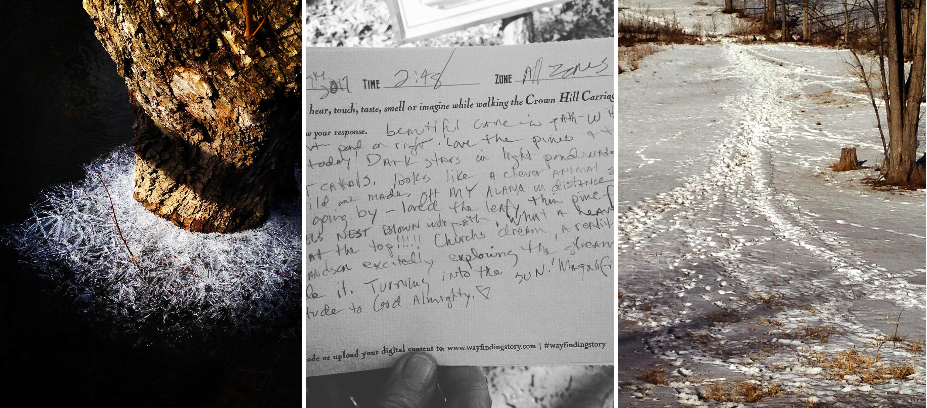 2017 TIME 2:48 ZONE All zones
hear, touch, taste, smell or imagine while walking the Crown Hill Carriag
w your response. beautiful curve in path - W
pond on right. Love the pines
today! Dark stars in light pond
looks like a clever animal
made off MY ALANA in distance
going by - loved the leafy thin pine
NEST Blown into path. What a
at the top!!!! Church's dream, a realit
excitedly exploring the stream
it. Turning into the SUN! Magnifi
tude to God Almighty. ♡
ode or upload your digital content to: www.wayfindingstory.com | #wayfindingstory